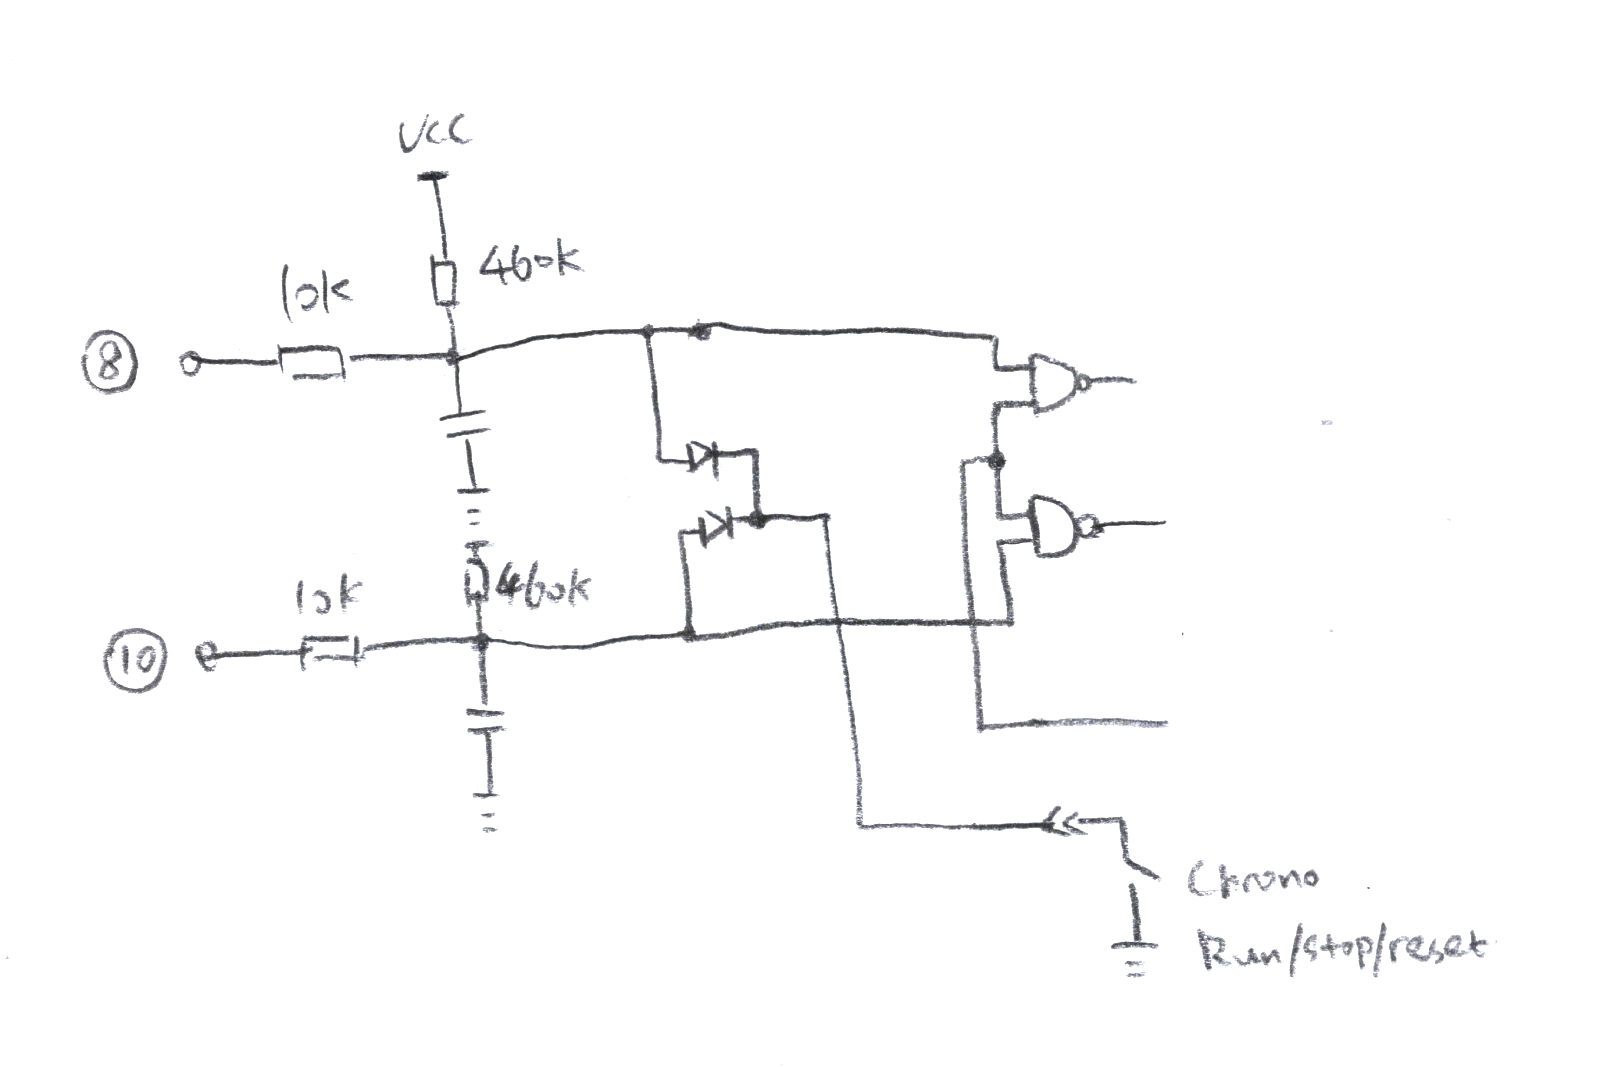 VCC
460k
10k
8
460k
10k
10
Chrono
Run/stop/reset